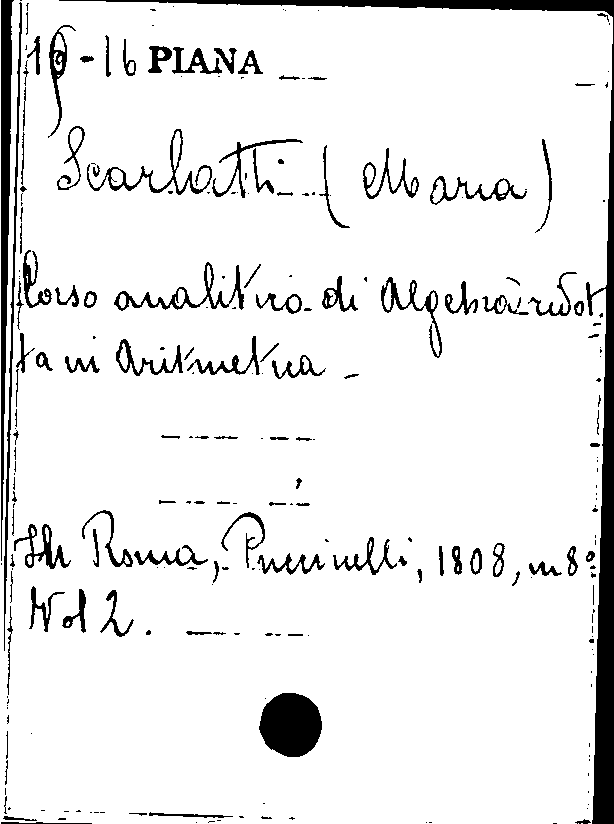 -16 PIANA
Scarlatti (Maria)
Corso analitico di Algebra ridot
ta in Aritmetica -
In Roma, Puccinelli, 1808, in 8º
Vol 2.